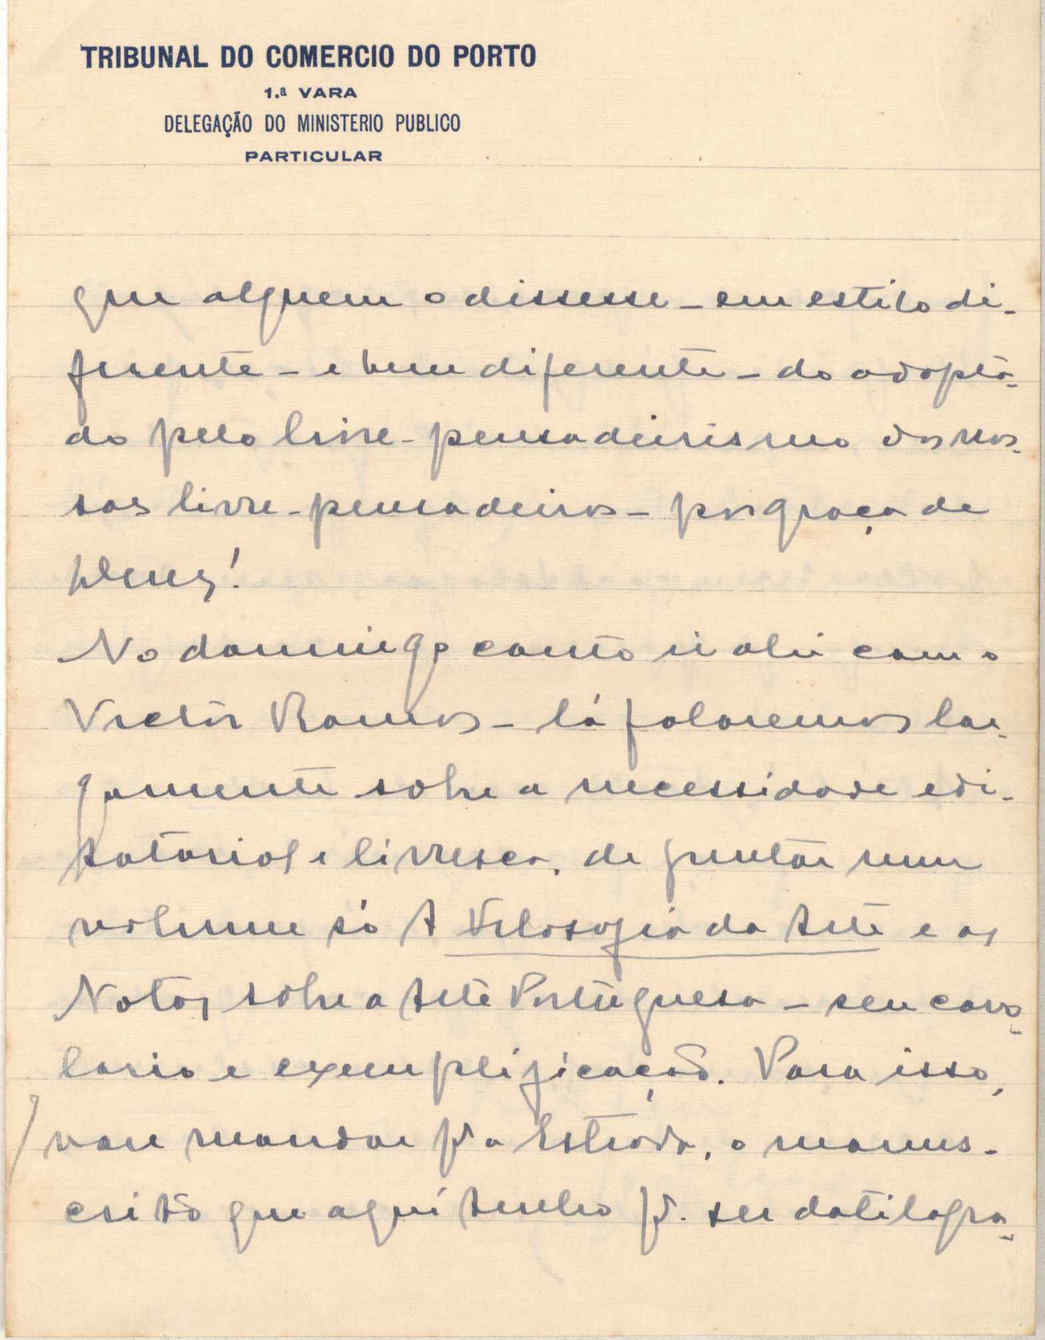 TRIBUNAL DO COMERCIO DO PORTO
1.ª VARA
DELEGAÇÃO DO MINISTERIO PUBLICO
PARTICULAR
que alguem o dissesse - em estilo di-
ferente - e bem diferente - do adopta-
do pelo livre-pensadeirismo dos nos-
sos livre-pensadeiros - por graça de
No domingo conto ir ahi com o
Victor Ramos - lá falaremos lar-
gamente sobre a necessidade edi-
tatorial e livresca, de juntar num
volume só A Filosofia da Arte e as
Notas sobre a Arte Portuguesa - seu coro-
lario e exemplificação. Para isso,
vou mandar pª a Estrada, o manus-
crito que aqui tenho pª. ser datilogra-